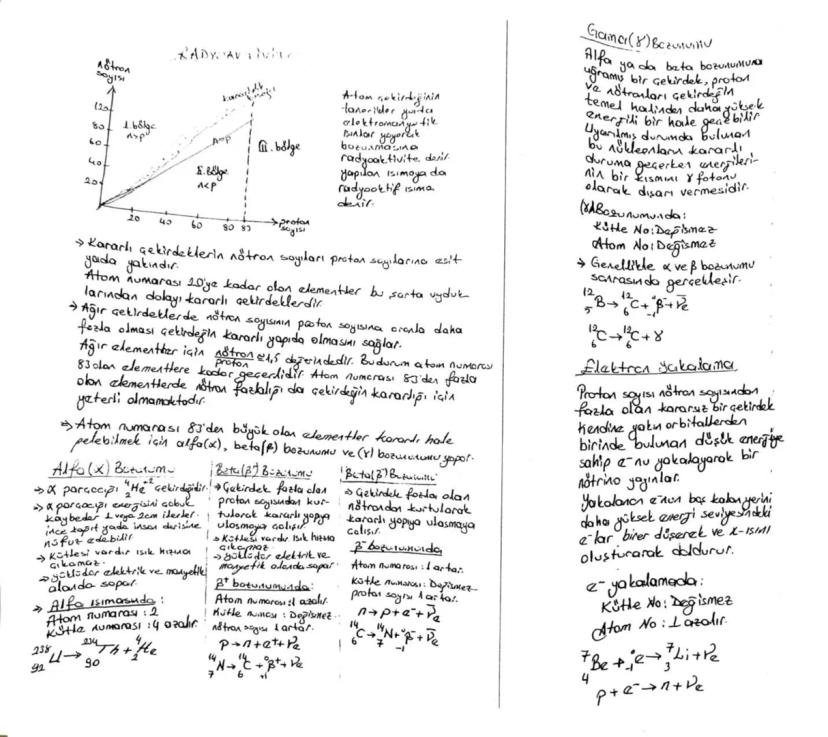 RADYOAKTİVİTE
nötron
sayısı
120
80
60
40
20
1. bölge
n>p
Kararlılık
kuşağı
n=p
II. bölge
n<p
III. bölge
20 40 60 80 83
proton
sayısı
Atom çekirdeğinin
elektromanyetik
ışınlar yayarak
bozunmasına
radyoaktivite denir.
yapılan ısımaya da
radyoaktif ısıma
denir.
→ Kararlı çekirdeklerin nötron sayıları proton sayılarına eşit
yada yakındır.
Atom numarası 20'ye kadar olan elementler bu şarta uyduk-
larından dolayı kararlı çekirdeklerdir.
→ Ağır çekirdeklerde nötron sayısının proton sayısına oranla daha
fazla olması çekirdeğin kararlı yapıda olmasını sağlar.
Ağır elementler için nötron/proton ≅ 1,5 değerindedir. Bu durum atom numarası
83 olan elementlere kadar geçerlidir. Atom numarası 83'den fazla
olan elementlerde nötron fazlalığı da çekirdeğin kararlığı için
yeterli olmamaktadır.
→ Atom numarası 83'den büyük olan elementler kararlı hale
gelebilmek için alfa(α), beta(β) bozunumu ve (γ) bozunumu yapar.
Alfa (α) Bozunumu
→ α parçacığı ⁴₂He⁺² çekirdeğidir.
→ α parçacığı enerjisini çabuk
kaybeder 1 veya 2cm ilerler
ince kağıt yada insan derisine
nüfuz edebilir.
→ Kütlesi vardır ışık hızına
çıkamaz.
→ yüklüdür elektrik ve manyetik
alanda sapar.
→ Alfa ısımasında:
Atom numarası : 2
Kütle numarası : 4 azalır.
²³⁸₉₂U → ²³⁴₉₀Th + ⁴₂He
Beta (β⁺) Bozunumu
→ Çekirdek fazla olan
proton sayısından kur-
tularak kararlı yapıya
ulaşmaya çalışır
→ Kütlesi vardır ışık hızına
çıkamaz.
→ yüklüdür elektrik ve
manyetik alanda sapar.
β⁺ bozunumunda:
Atom numarası : 1 azalır.
Kütle numarası : Değişmez.
nötron sayısı 1 artar.
p → n + e⁺ + νₑ
¹⁴₇N → ¹⁴₆C + ⁰₊₁β⁺ + νₑ
Beta (β⁻) Bozunumu
→ Çekirdek fazla olan
nötrondan kurtularak
kararlı yapıya ulaşmaya
çalışır.
β⁻ bozunumunda
Atom numarası : 1 artar.
kütle numarası : Değişmez
proton sayısı 1 artar.
n → p + e⁻ + ν̄ₑ
¹⁴₆C → ¹⁴₇N + ⁰₋₁β⁻ + ν̄ₑ
Gama (γ) Bozunumu
Alfa ya da beta bozunumuna
uğramış bir çekirdek, proton
ve nötronları çekirdeğin
temel halinden daha yüksek
enerjili bir hale geçebilir
Uyarılmış durumda bulunan
bu nükleonların kararlı
duruma geçerken enerjileri-
nin bir kısmını γ fotonu
olarak dışarı vermesidir.
(γ) Bozunumunda:
Kütle No: Değişmez
Atom No: Değişmez
→ Genellikle α ve β bozunumu
sonrasında gerçekleşir.
¹²₅B → ¹²₆C + ⁰₋₁β + ν̄ₑ
¹²₆C → ¹²₆C + γ
Elektron yakalama
Proton sayısı nötron sayısından
fazla olan kararsız bir çekirdek
kendine yakın orbitallerden
birinde bulunan düşük enerjiye
sahip e⁻nu yakalayarak bir
nötrino yayınlar.
Yakalanan e⁻nun boş kalan yerini
daha yüksek enerji seviyesindeki
e⁻lar birer düşerek ve x-ışını
oluşturarak doldurur.
e⁻ yakalamada:
Kütle No: Değişmez
Atom No : 1 azalır.
⁷₄Be + ⁰₋₁e → ⁷₃Li + νₑ
p + e⁻ → n + νₑ